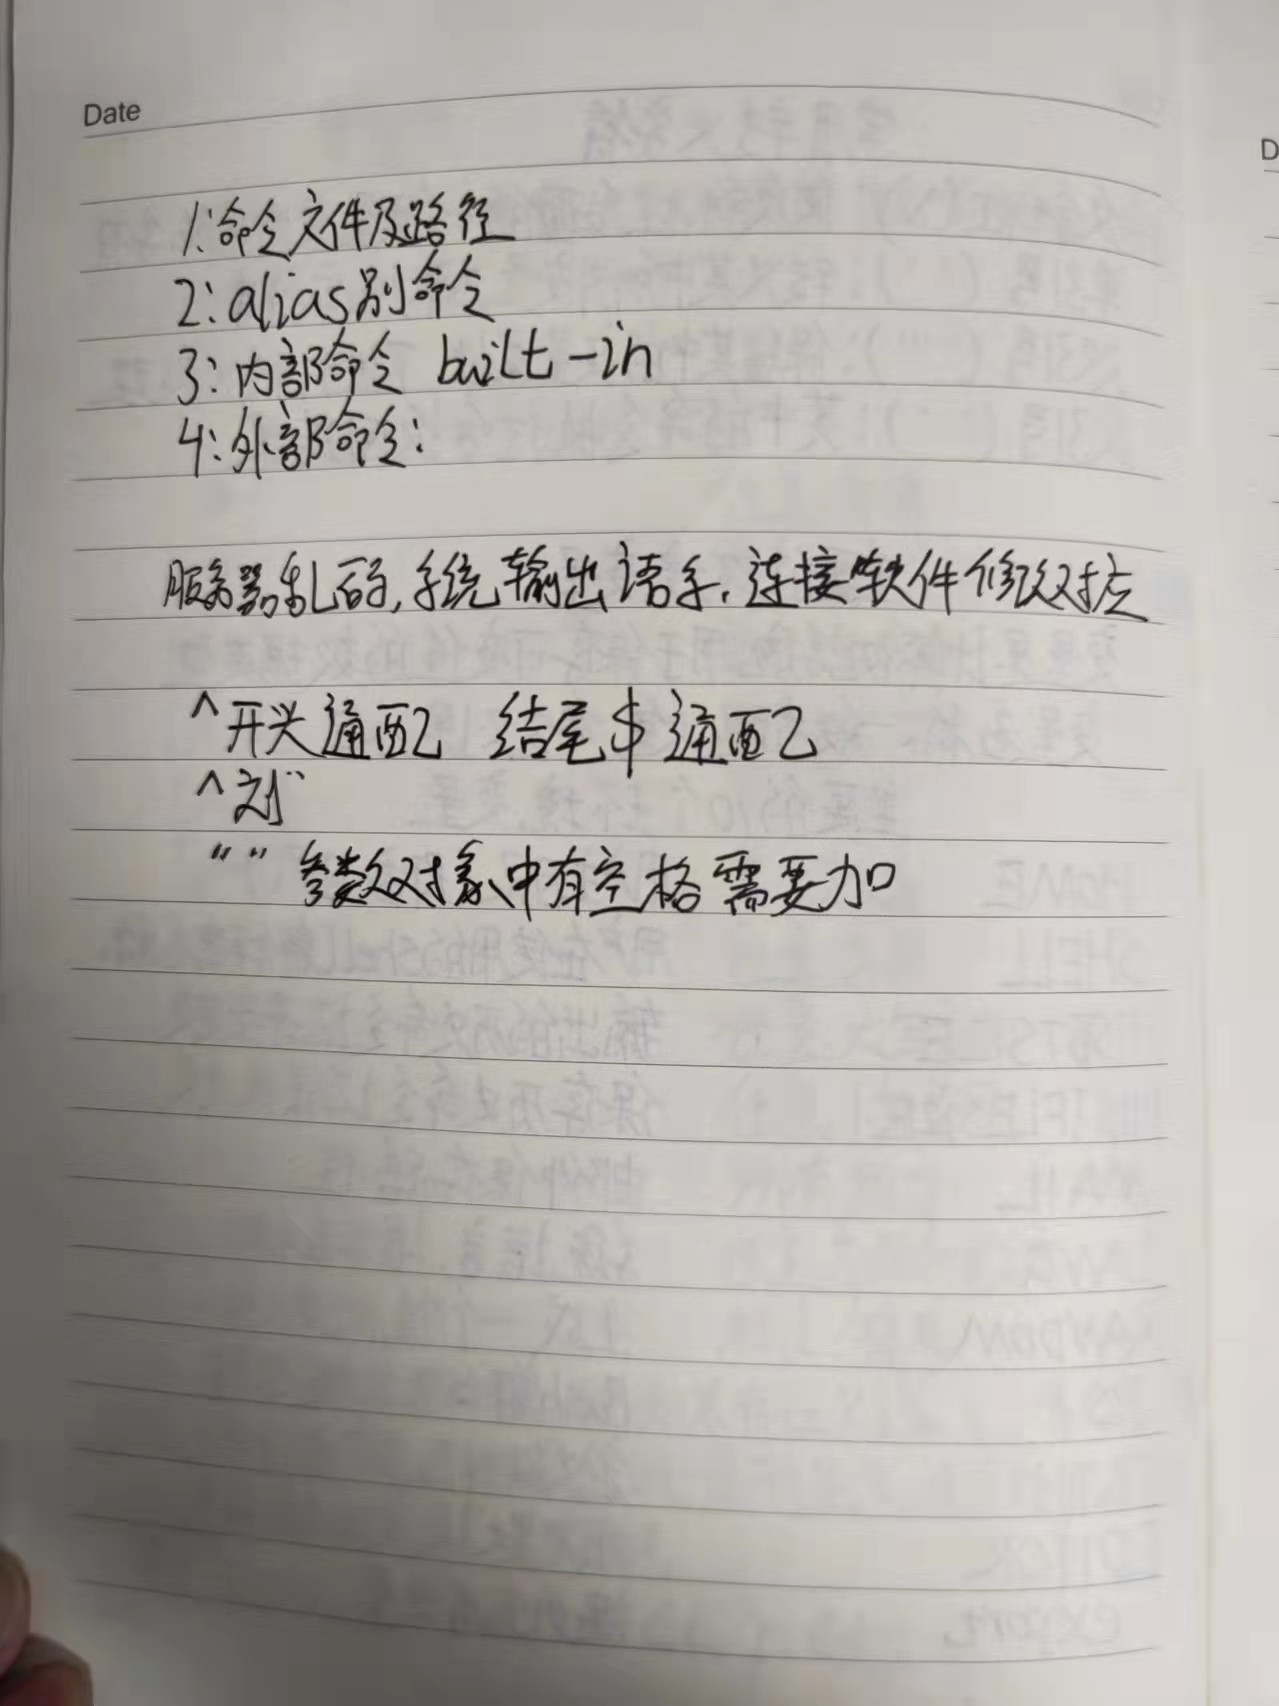 Date
1:命令文件及路径
2:alias别命令
3:内部命令 built-in
4:外部命令:
服务器乱码,系统输出语系.连接软件修改对应
^开头通配 结尾$通配
^
“” 参数对象中有空格需要加